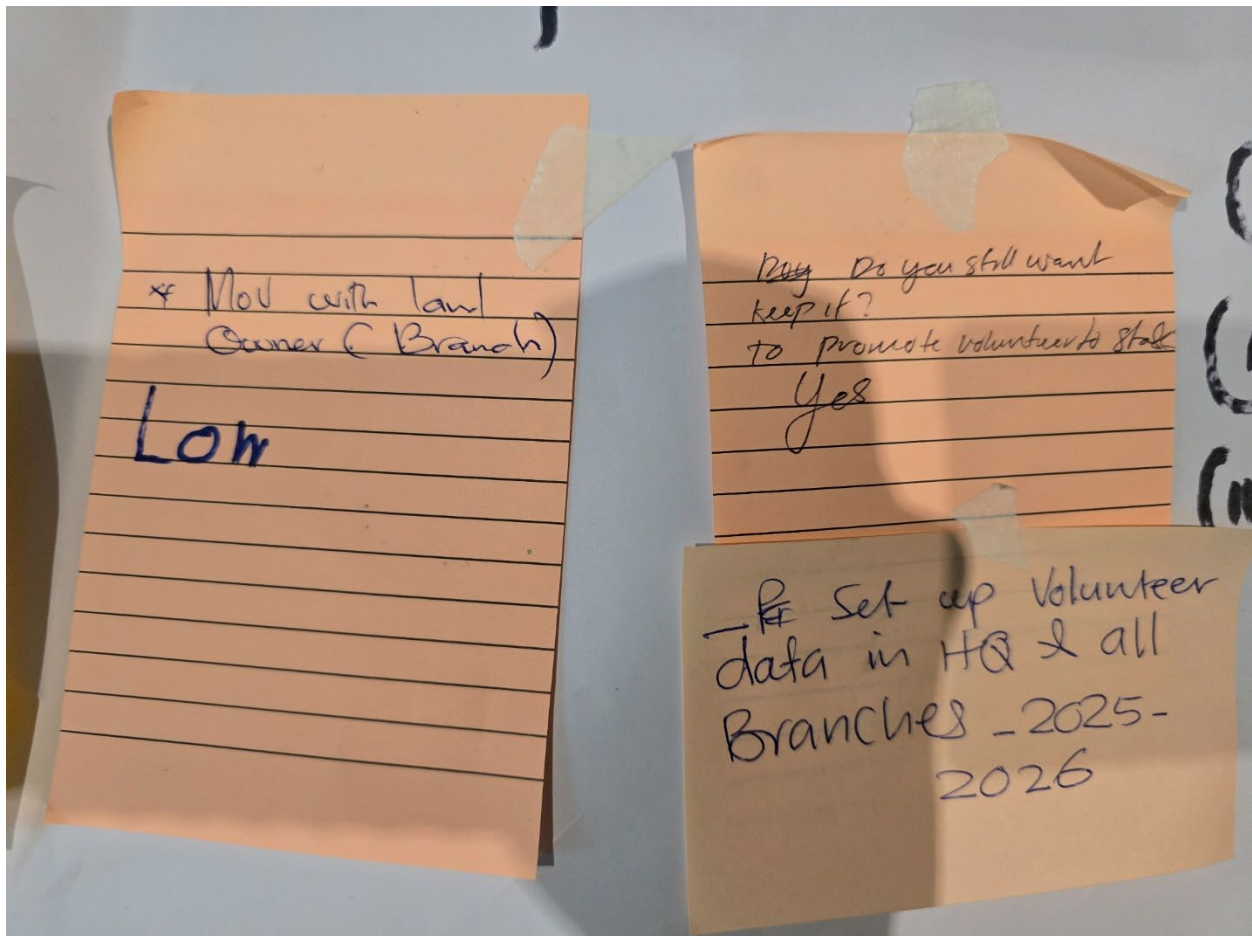 * MoU with land
Owner ( Branch)
Low
Do you still want
keep it?
To promote volunteer to staff
Yes
Set up Volunteer
data in HQ & all
Branches - 2025-
2026